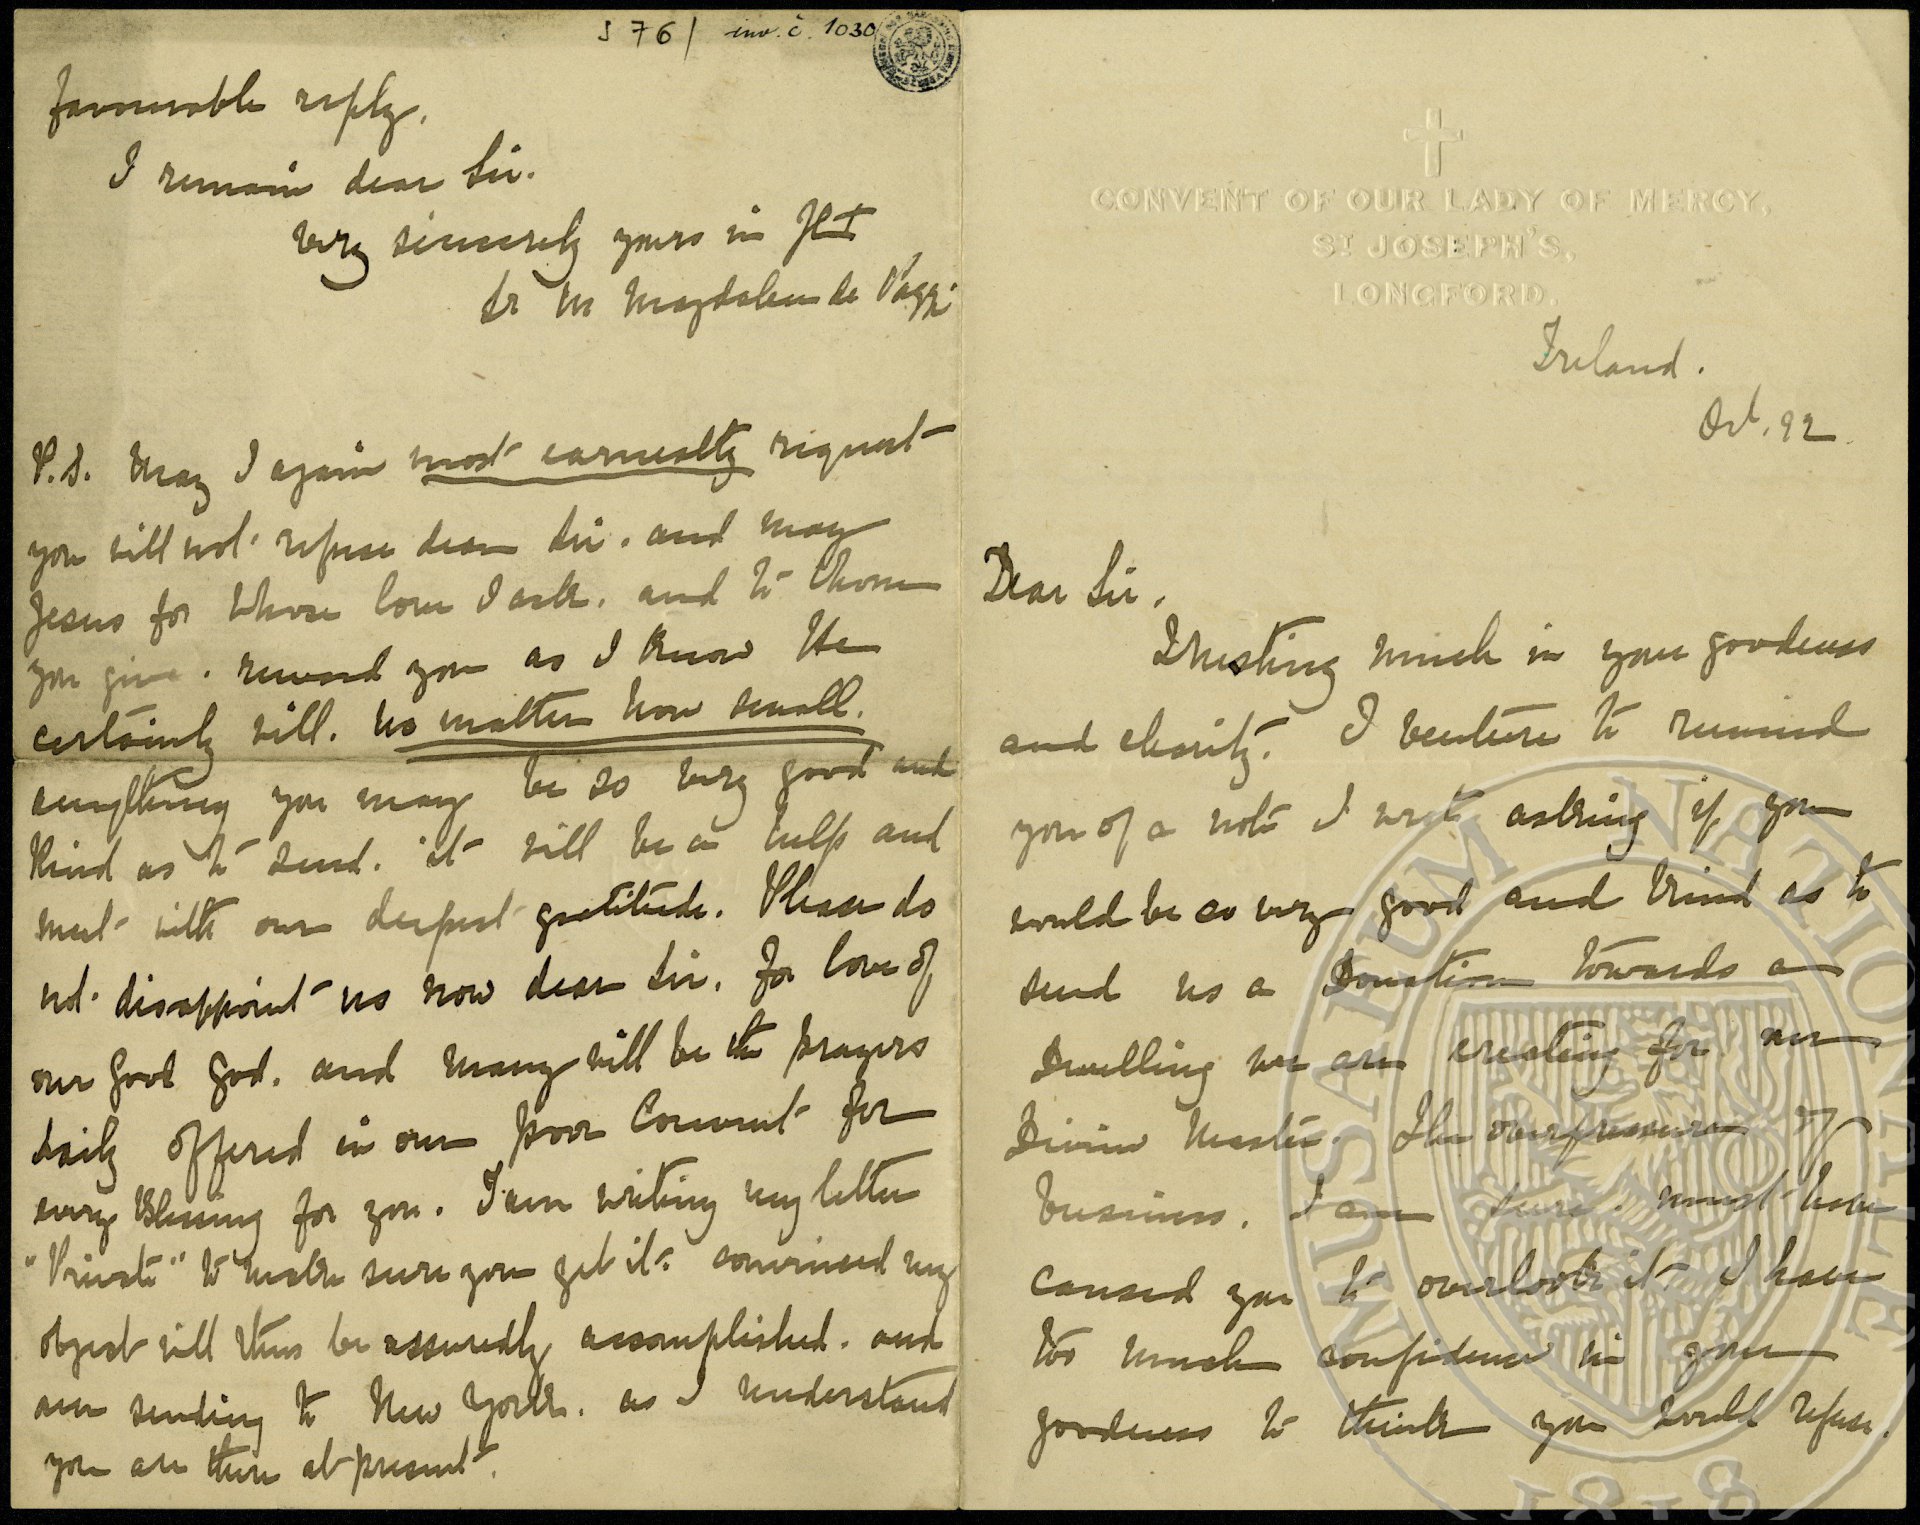 S 76/ inv. č. 1030
favourable reply.
I remain dear Sir.
very sincerely yours in
Sr M Magdalen de Pazzi
P.S. May I again most earnestly request
you will not refuse dear Sir. and may
Jesus for Whose love I ask. and to Whom
you give. reward you as I know He
certainly will. No matter how small.
anything you may be so very good and
Kind as to send. it will be a help and
meet with our deepest gratitude. Please do
not disappoint us now dear Sir. for love of
our good God. and many will be the prayers
daily offered in our poor Convent for
every Blessing for you. I am writing my letter
"Private" to make sure you get it. convinced my
object will thus be assuredly accomplished. and
am sending to New York. as I understand
you are there at present.
CONVENT OF OUR LADY OF MERCY,
ST JOSEPH'S,
LONGFORD.
Ireland.
Oct. 92
Dear Sir,
Trusting much in your goodness
and charity. I venture to remind
you of a note I wrote asking if you
would be so very good and Kind as to
send us a Donation towards a
Dwelling we are erecting for our
Divine Master. The overpressure of
business. I am sure. must have
caused you to overlook it. I have
too much confidence in your
goodness to think you would refuse.
MUSAEUM NATIONALE
1818